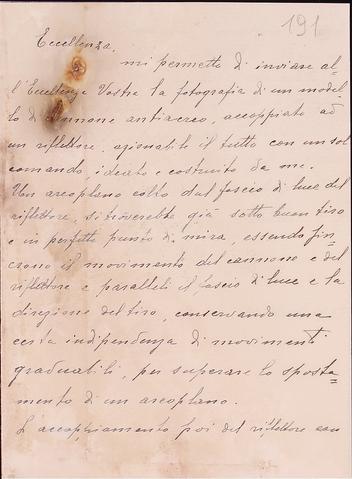 191
Eccellenza,
mi permetto di inviare al-
l'Eccellenza Vostra la fotografia di un model-
lo di cannone antiaereo, accoppiato ad
un riflettore, azionabili il tutto con un sol
comando, ideato e costruito da me.
Un areoplano colto dal fascio di luce del
riflettore, si troverebbe già sotto buon tiro
e in perfetto punto di mira, essendo sin-
crono il movimento del cannone e del
riflettore e paralleli il fascio di luce e la
direzione del tiro, conservando una
certa indipendenza di movimenti
graduabili, per superare lo sposta=
mento di un areoplano.
L'accoppiamento poi del riflettore con